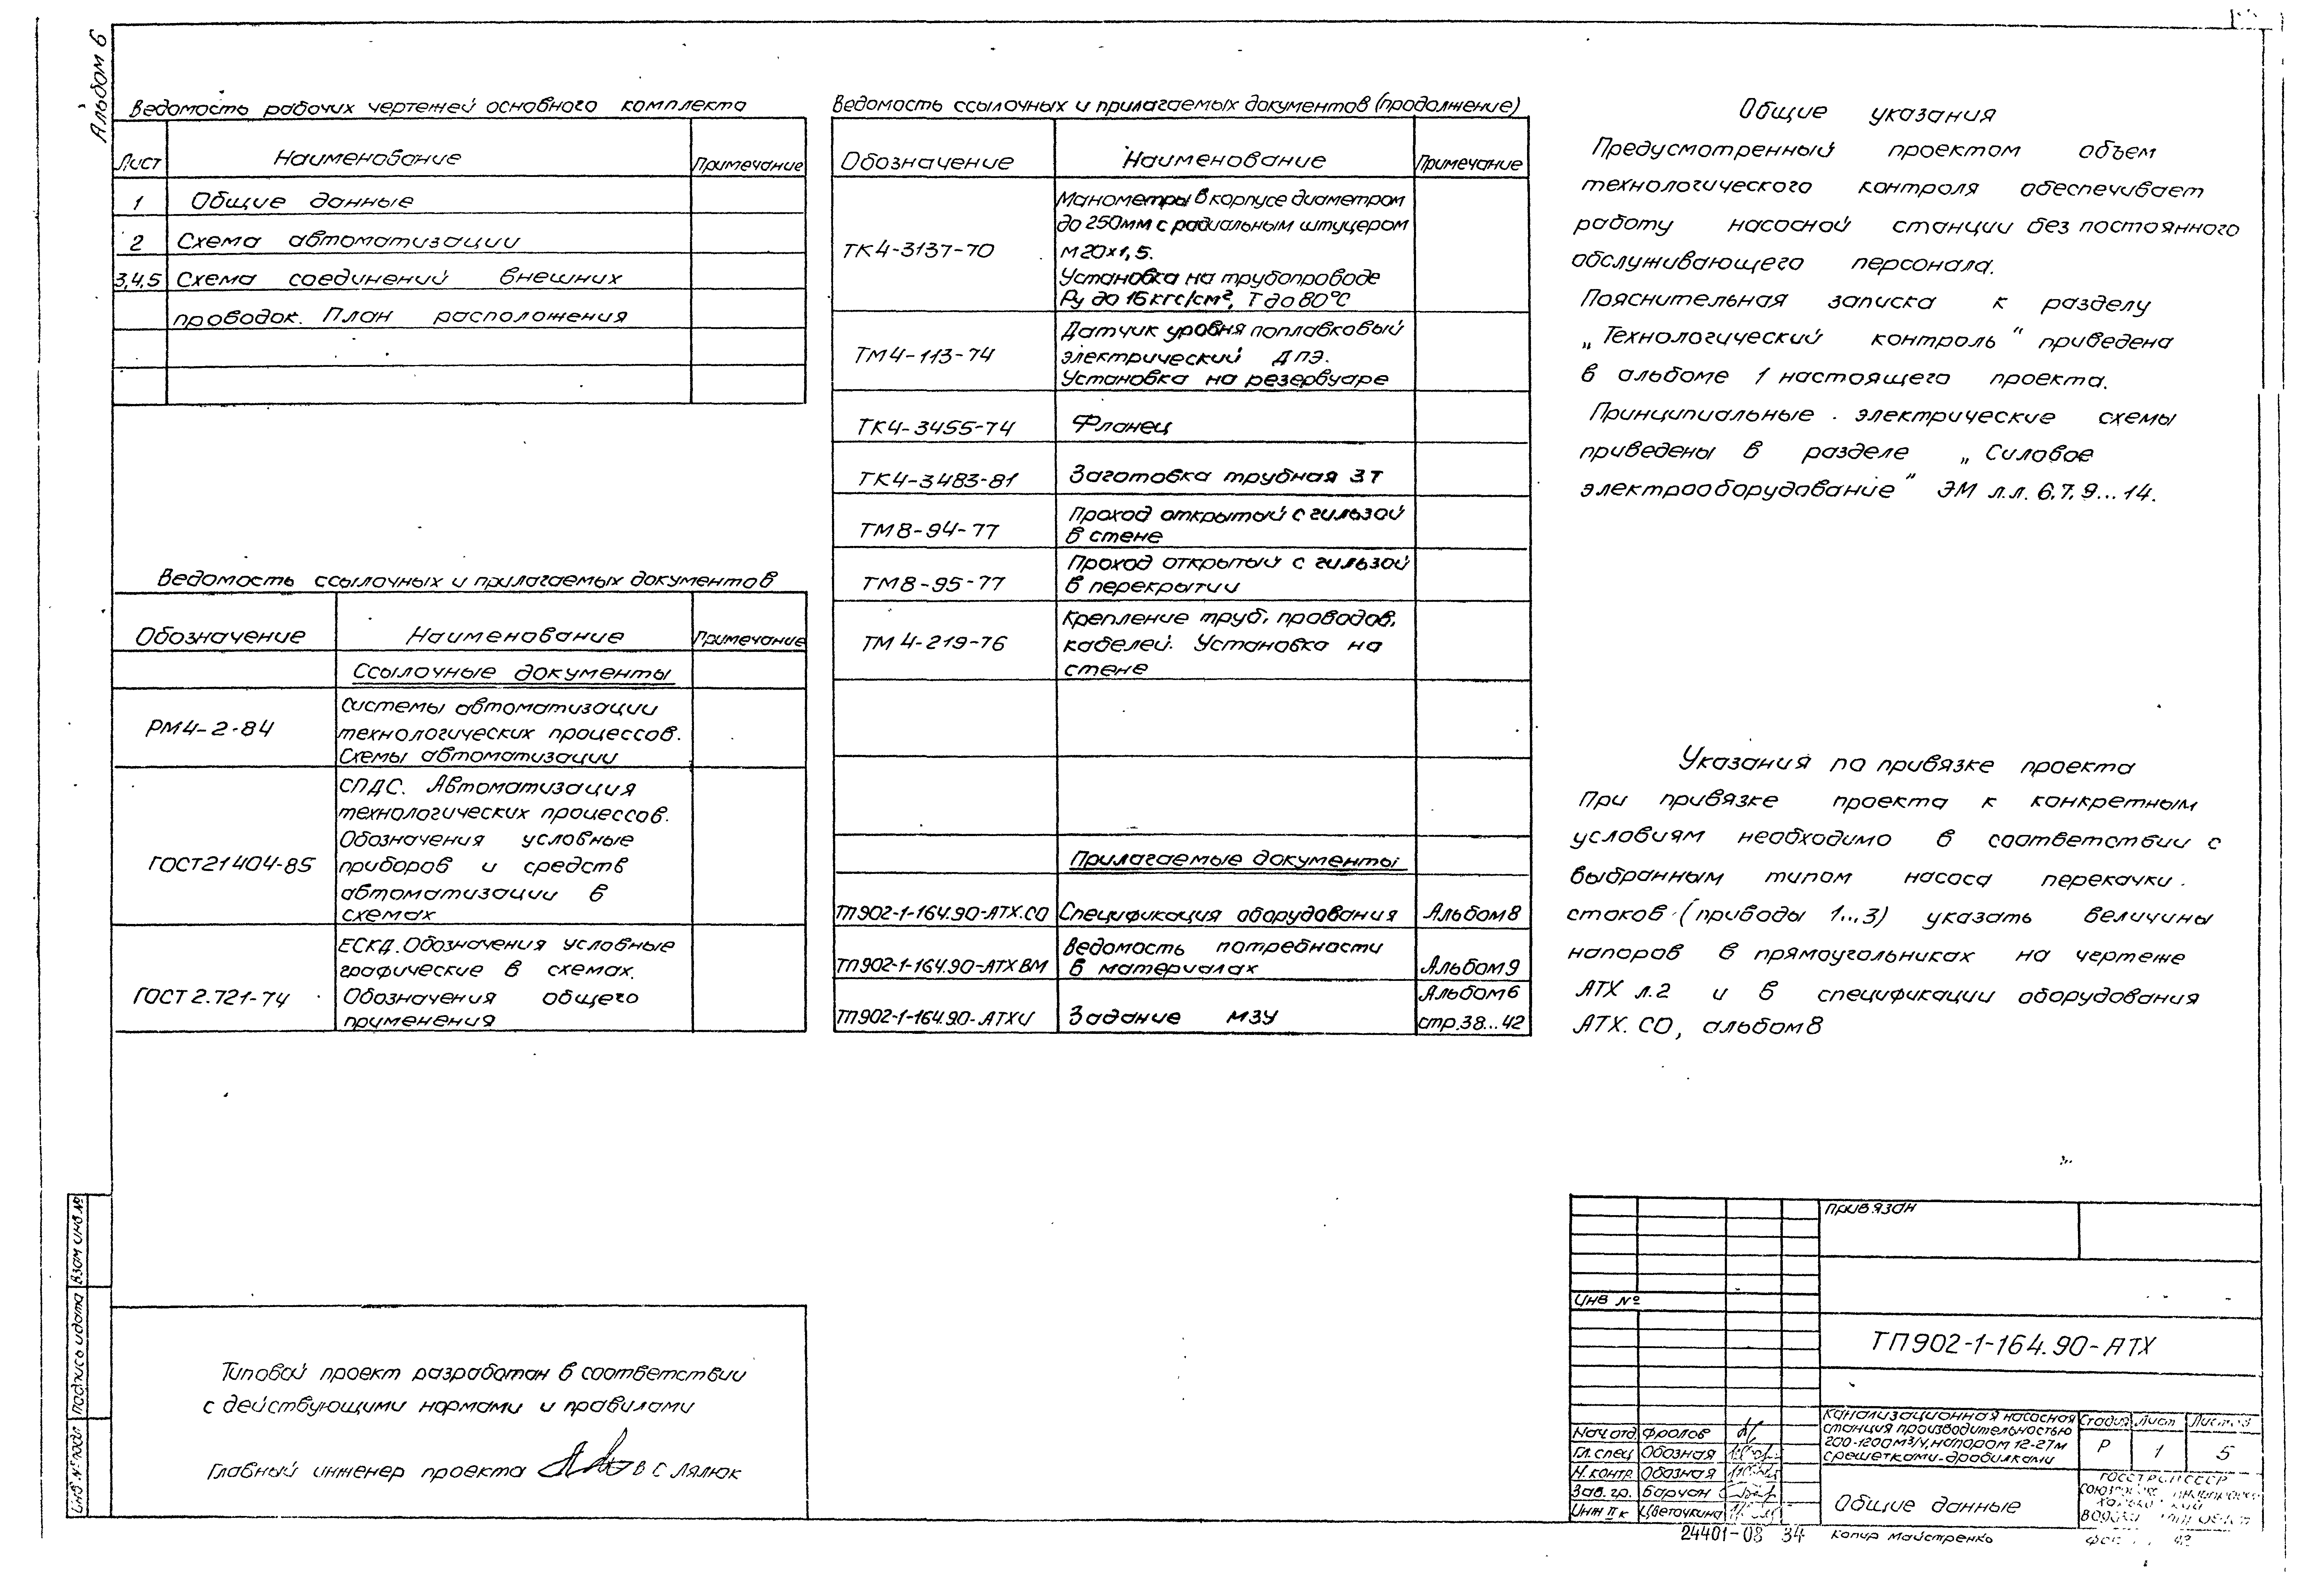 Альбом 6
Ведомость рабочих чертежей основного комплекта
Лист Наименование Примечание
1 Общие данные
2 Схема автоматизации
3,4,5 Схема соединений внешних
проводок. План расположения
Ведомость ссылочных и прилагаемых документов
Обозначение Наименование Примечание
Ссылочные документы
РМ4-2-84
Системы автоматизации
технологических процессов.
Схемы автоматизации
ГОСТ21404-85
СПДС. Автоматизация
технологических процессов.
Обозначения условные
приборов и средств
автоматизации в
схемах
ГОСТ 2.721-74
ЕСКД. Обозначения условные
графические в схемах.
Обозначения общего
применения
Ведомость ссылочных и прилагаемых документов (продолжение)
Обозначение Наименование Примечание
ТК4-3137-70
Манометры в корпусе диаметром
до 250мм с радиальным штуцером
М20х1,5.
Установка на трубопроводе
Ру до 16кгс/см², Т до 80°С
ТМ4-113-74
Датчик уровня поплавковый
электрический ДПЭ.
Установка на резервуаре
ТК4-3455-74 Фланец
ТК4-3483-81 Заготовка трубная ЗТ
ТМ8-94-77
Проход открытый с гильзой
в стене
ТМ8-95-77
Проход открытый с гильзой
в перекрытии
ТМ4-219-76
Крепление труб, проводов,
кабелей. Установка на
стене
Прилагаемые документы
ТП902-1-164.90-АТХ.СО Спецификация оборудования Альбом 8
ТП902-1-164.90-АТХ.ВМ
Ведомость потребности
в материалах
Альбом 9
ТП902-1-164.90-АТХИ Задание МЗУ
Альбом 6
стр.38...42
Общие указания
Предусмотренный проектом объем
технологического контроля обеспечивает
работу насосной станции без постоянного
обслуживающего персонала.
Пояснительная записка к разделу
„Технологический контроль" приведена
в альбоме 1 настоящего проекта.
Принципиальные электрические схемы
приведены в разделе „Силовое
электрооборудование" ЭМ л.л. 6,7,9...14.
Указания по привязке проекта
При привязке проекта к конкретным
условиям необходимо в соответствии с
выбранным типом насоса перекачки
стоков (приводы 1...3) указать величины
напоров в прямоугольниках на чертеже
АТХ л.2 и в спецификации оборудования
АТХ.СО, альбом 8
Типовой проект разработан в соответствии
с действующими нормами и правилами
Главный инженер проекта В С Лялюк
Взам инв.№
Подпись и дата
Инв.№ подл
Привязан
Инв №
ТП902-1-164.90-АТХ
Нач.отд Фролов
Гл.спец Обозная
Н.контр. Обозная
Зав.гр. Барчан
Инж II к Цветочкина
Канализационная насосная
станция производительностью
200-1200 м³/ч, напором 12-27м
с решетками-дробилками
Стадия Лист Листов
Р 1 5
Общие данные
ГОССТРОЙ СССР
24401-08 34
Копир Майстренко